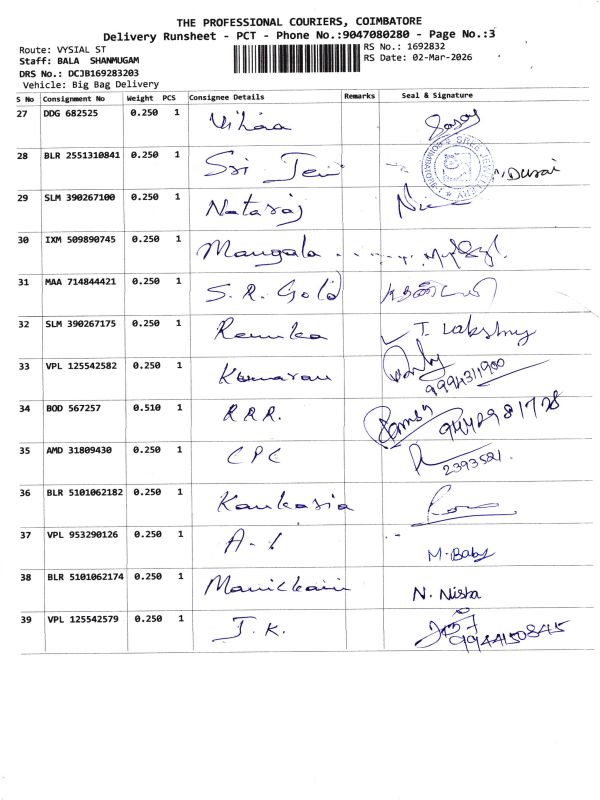 THE PROFESSIONAL COURIERS, COIMBATORE
Delivery Runsheet - PCT - Phone No.:9047080280 - Page No.:3
Route: VYSIAL ST
RS No.: 1692832
Staff: BALA SHANMUGAM
RS Date: 02-Mar-2026
DRS No.: DCJB169283203
Vehicle: Big Bag Delivery
S No Consignment No Weight PCS Consignee Details Remarks Seal & Signature
27 DDG 682525 0.250 1 Vihaa
28 BLR 2551310841 0.250 1 Sri Jei Durai
29 SLM 390267100 0.250 1 Nataraj
30 IXM 509890745 0.250 1 Mangala
31 MAA 714844421 0.250 1 S. R. Gold
32 SLM 390267175 0.250 1 Renuka T. Lakshmy
33 VPL 125542582 0.250 1 Kumaran 9994311900
34 BOD 567257 0.510 1 R.R.R. Ramsy 9442981728
35 AMD 31809430 0.250 1 CPC 2393521.
36 BLR 5101062182 0.250 1 Kankaria
37 VPL 953290126 0.250 1 A-1 M. Baby
38 BLR 5101062174 0.250 1 Manickam N. Nisha
39 VPL 125542579 0.250 1 J.K. 9944150845